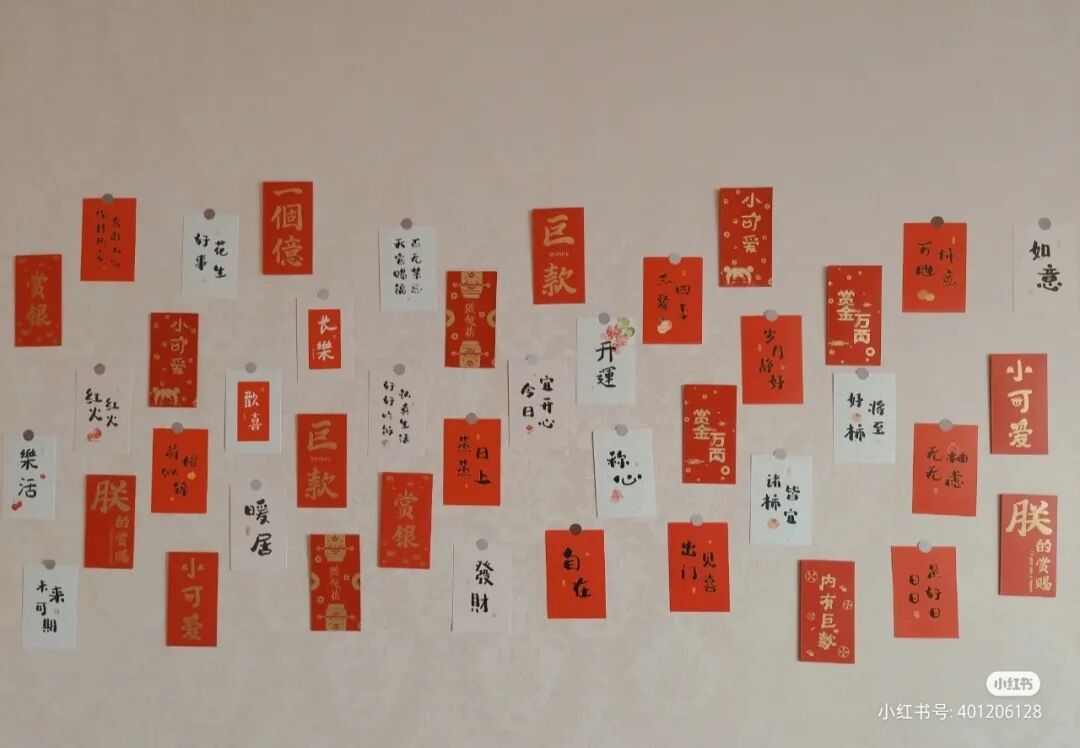 一個億
小可爱
巨款
好事
花生
天官赐福
百无禁忌
万柿
胜意
如意
赏银
三餐
四季
赏金
万两
长樂
小可爱
开運
岁月
静好
小可爱
红火
红火
歡喜
好好吃饭
认真生活
今日
宜开心
好柿
将至
赏金
万两
巨款
蒸蒸
日上
樂活
称心
诸柿
皆宜
朕
的赏赐
暖居
赏银
朕
的赏赐
發財
自在
出门
见喜
日日
是好日
未来
可期
小可爱
内有巨款
小红书
小红书号: 401206128